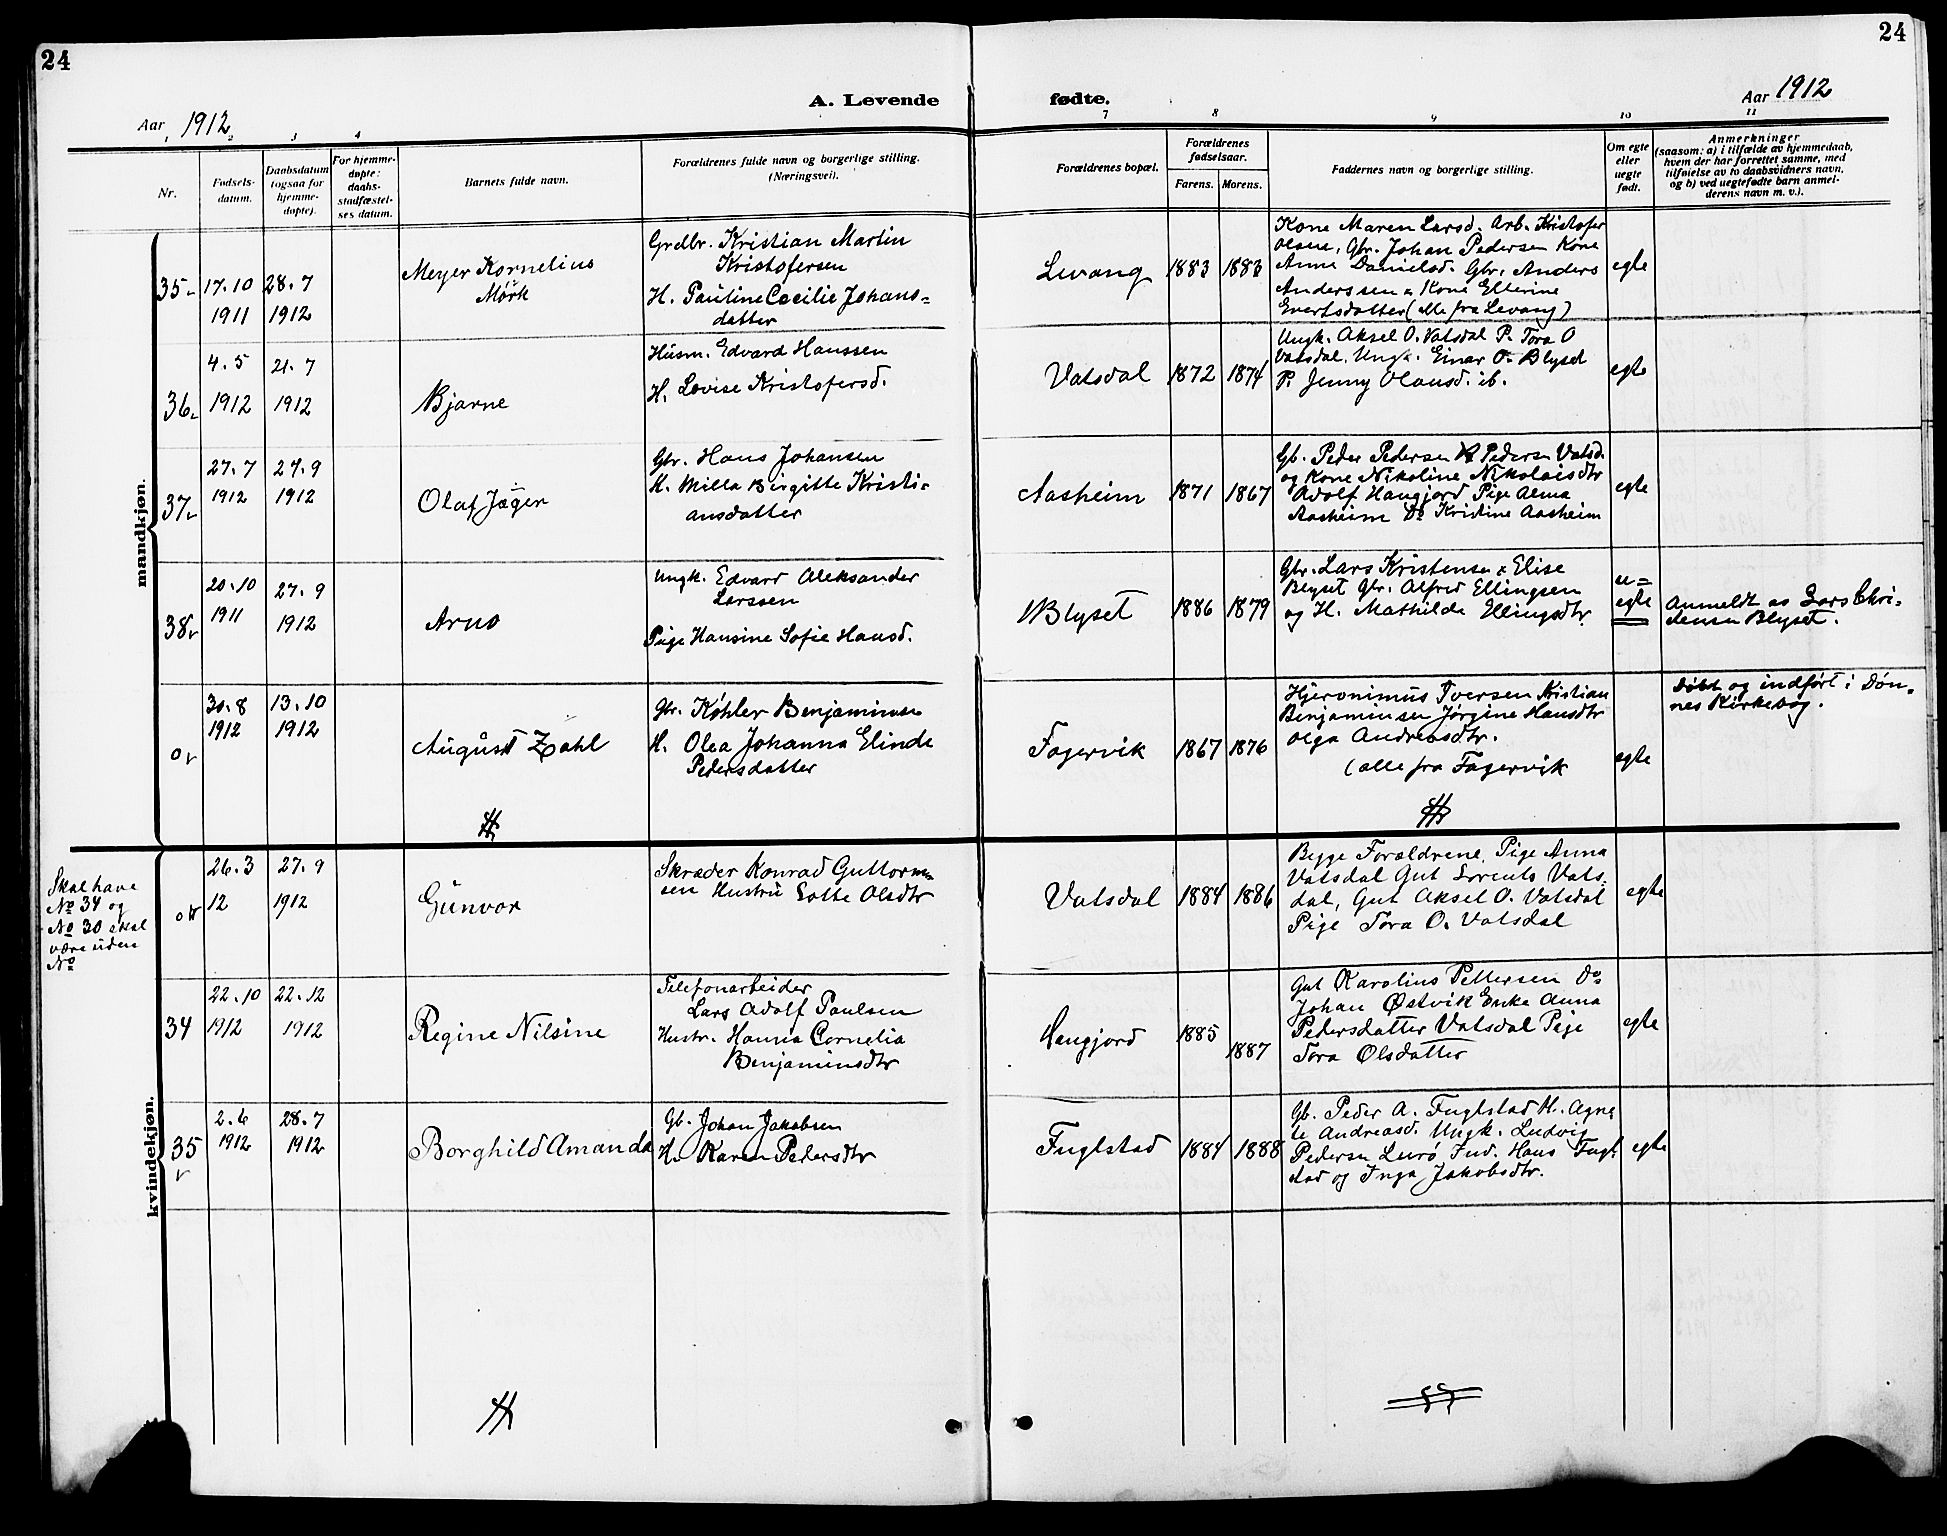 24
24
A. Levende
fødte.
Aar 1912
Aar 1912
1 2 3 4
7 8 9 10 11
Nr.
Fødsels-
datum.
Daabsdatum
(ogsaa for
hjemme-
døpte).
For hjemme-
døpte:
daabs-
stadfæstel-
ses datum.
Barnets fulde navn.
Forældrenes fulde navn og borgerlige stilling.
(Næringsvei).
Forældrenes bopæl.
Forældrenes
fødselsaar.
Farens. Morens.
Faddernes navn og borgerlige stilling.
Om egte
eller
uegte
født.
Anmerkninger
(saasom: a) i tilfælde av hjemmedaab,
hvem der har forrettet samme, med
tilføielse av to daabsvidners navn,
og b) ved uegtefødte barn anmel-
derens navn m. v.).
mandkjøn.
35
17.10
1911
28.7
1912
Meyer Kornelius
Mørk
Grdbr. Kristian Martin
Kristofersen
H. Pauline Cecilie Johans=
datter
Levang
1883
1883
Kone Maren Larsd. Arb. Kristofer
Olsen, Gbr. Johan Pedersen Kone
Anne Danielsd. Gbr. Anders
Anderssen & Kone Ellerine
Evertsdatter (alle fra Levang)
egte
36
4.5
1912
21.7
1912
Bjarne
Husm. Edvard Hanssen
H. Lovise Kristofersd.
Vatsdal
1872
1874
Ungk. Aksel O. Vatsdal P. Tora O
Vatsdal, Ungk. Einar O. Blyset
P. Jenny Olausd. ib.
egte
37
27.7
1912
27.9
1912
Olaf Jäger
Gbr. Hans Johansen
H. Milla Birgitte Kristi=
ansdatter
Aasheim
1871
1867
Gb. Peder Pedersen Pedersen Vatsd.
og Kone Nikoline Nikolaisdtr
Adolf Haugjord Pige Alma
Aasheim Do Kristine Aasheim
egte
38
20.10
1911
27.9
1912
Arno
Ungk. Edvard Aleksander
Larssen
Pige Hansine Sofie Hansd.
Blyset
1886
1879
Gbr. Lars Kristensen & Elise
Blyset Gbr. Alfred Ellingsen
og H. Mathilde Ellingsdtr
u=
egte
Anmeldt av Lars Chri-
stensen Blyset.
0
30.8
1912
13.10
1912
August Zahl
Gbr. Køhler Benjaminsen
H. Olea Johanna Elinde
Pedersdatter
Fagervik
1867
1876
Hjeronimus Iversen Kristian
Benjaminsen Jørgine Hansdtr
Olga Andreasdtr.
(alle fra Fagervik
egte
Døbt og indført i Døn-
nes Kirkebog.
kvindekjøn.
Skal have
No 34 og
No 30 skal
være uden
No
0
26.3
12
27.9
1912
Gunvor
Skræder Konrad Guttorm
sen Hustru Lotte Olsdtr
Vatsdal
1884
1886
Begge Forældrene, Pige Anna
Vatsdal Gut Lorents Vats.
dal, Gut Aksel O. Vatsdal
Pige Tora O. Vatsdal
egte
34
22.10
1912
22.12
1912
Regine Nilsine
Telefonarbeider
Lars Adolf Paulsen
Hustr. Hanna Cornelia
Benjaminsdtr
Haugjord
1885
1887
Gut Karolius Pettersen Do
Johan Østvik Enke Anna
Pedersdatter Vatsdal Pige
Tora Olsdatter
egte
35
2.6
1912
28.7
1912
Borghild Amanda
Gb. Johan Jakobsen
H. Karen Pedersdtr
Fuglstad
1884
1888
Gb. Peder A. Fuglstad H. Agne
te Andreasd. Ungk. Ludvig
Pedersen Lurø Fud. Hans Fugl
stad og Inga Jakobsdtr.
egte